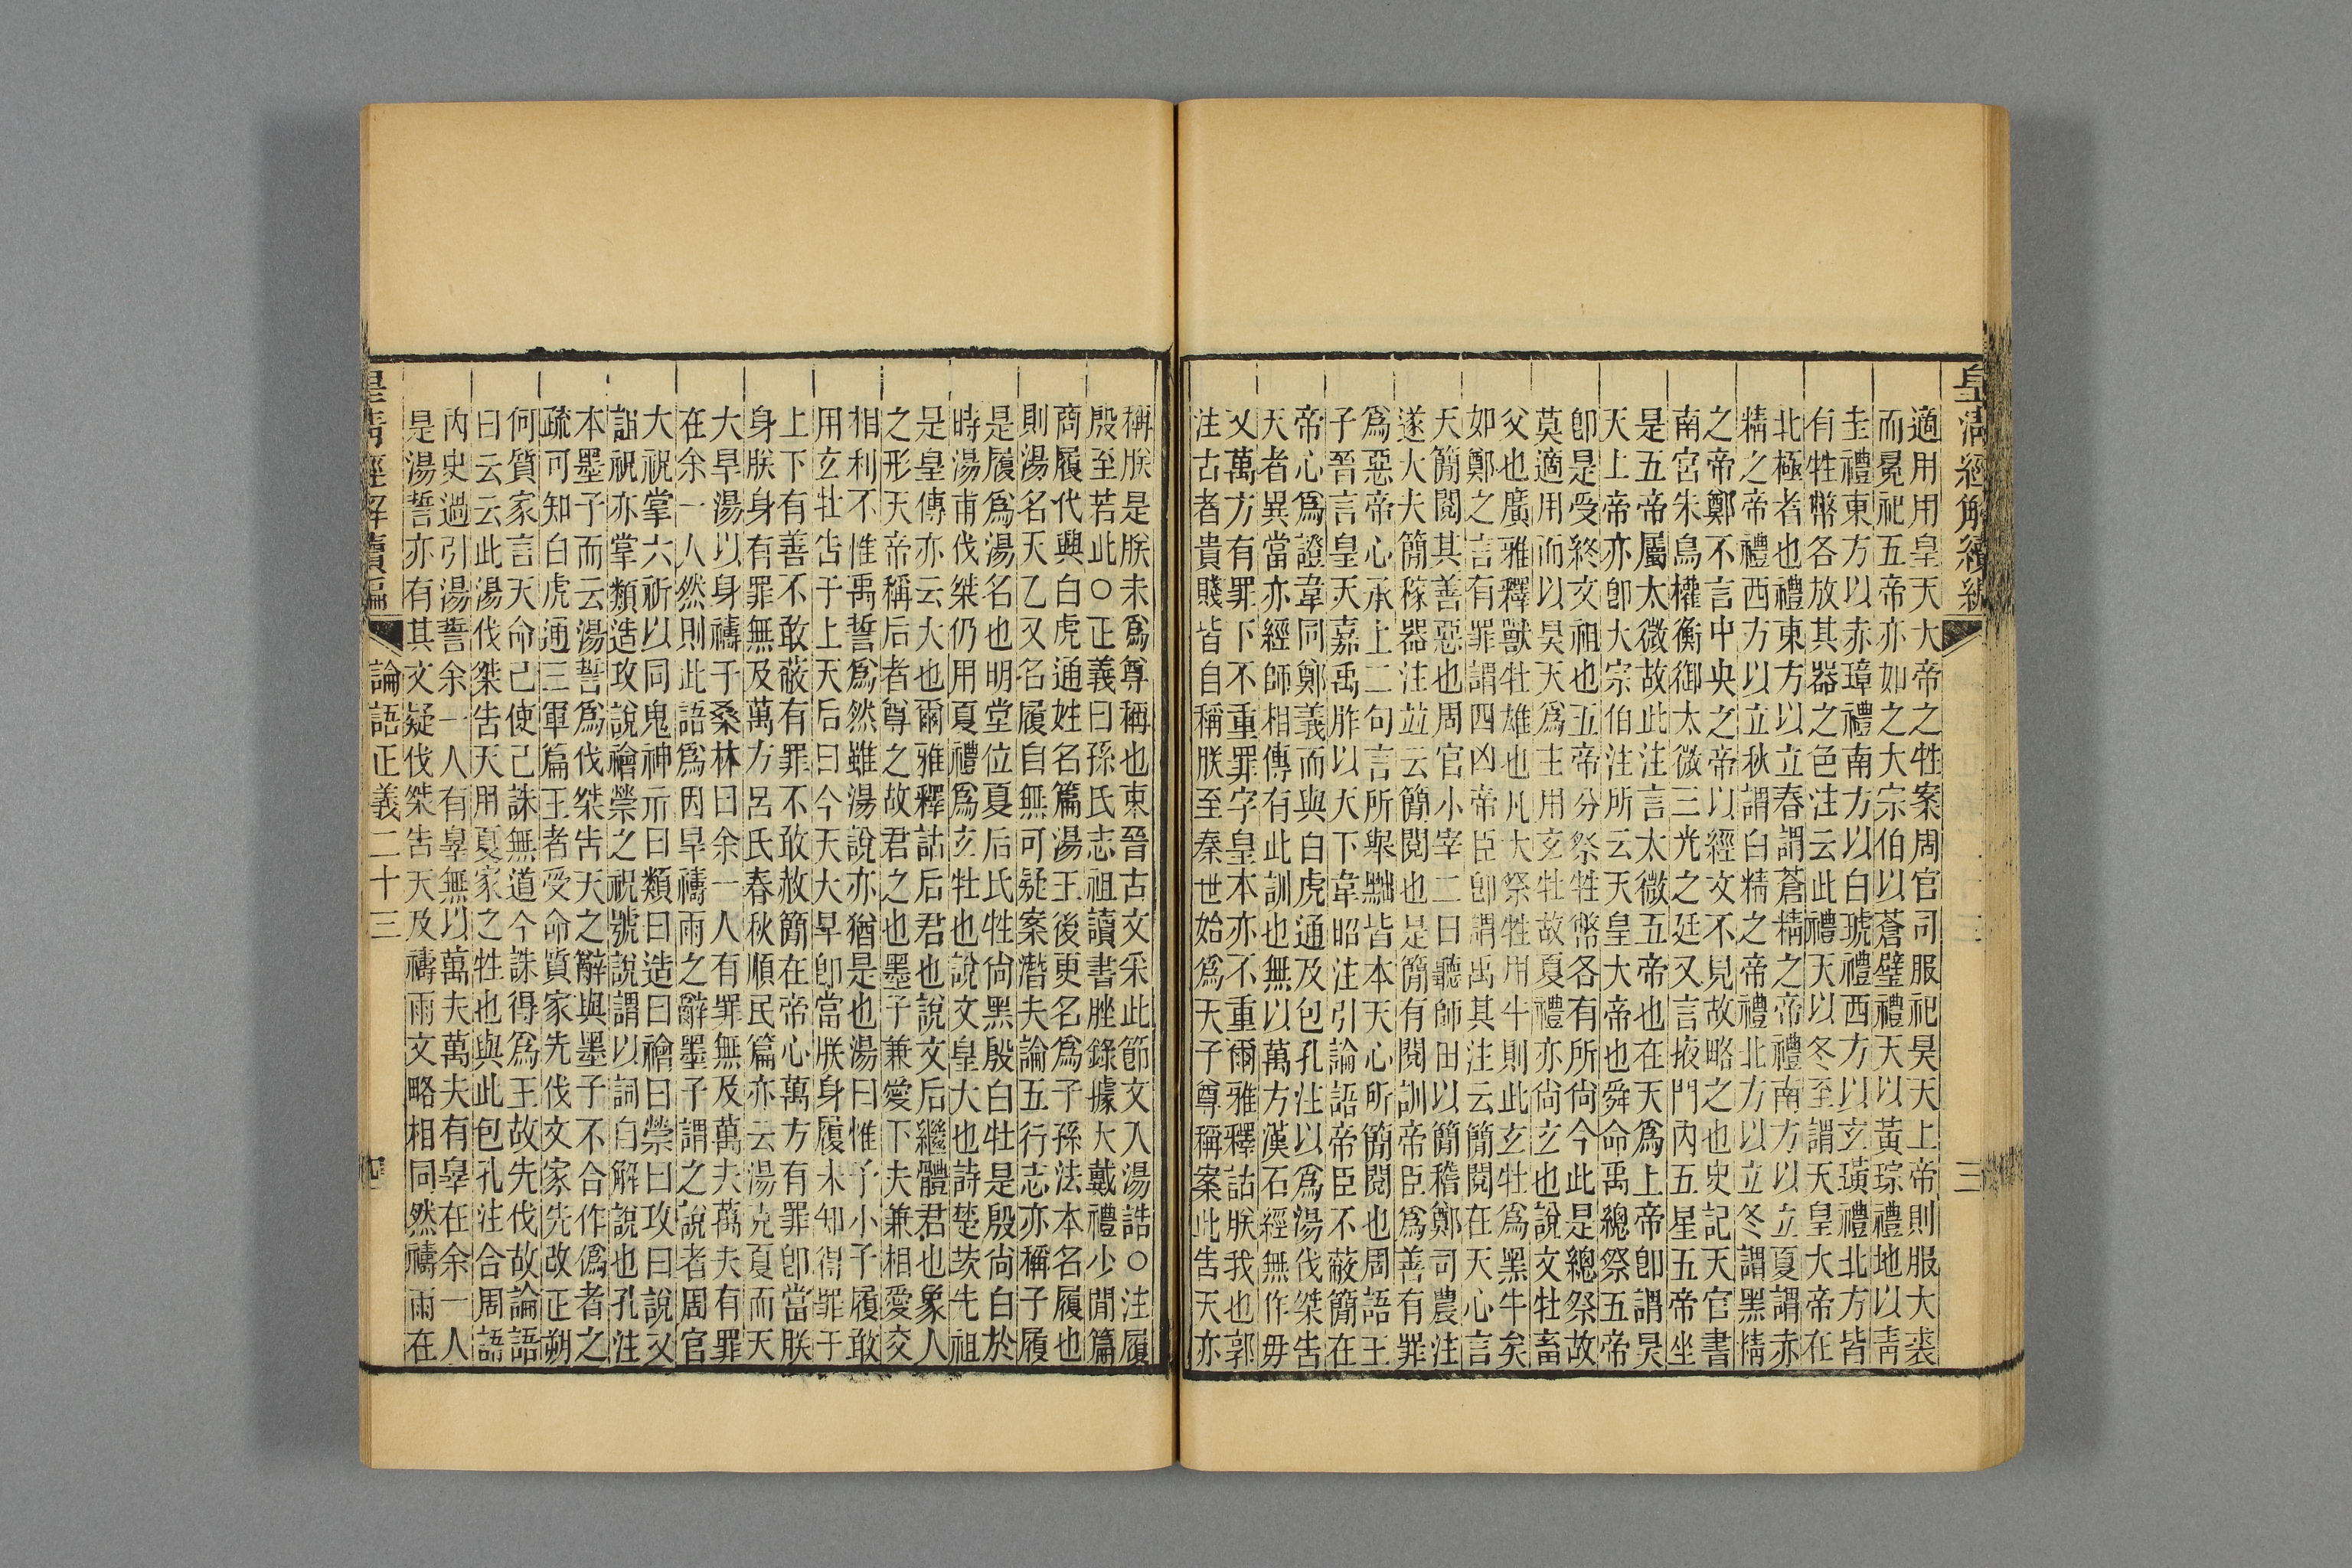 皇清經解續編　三
適用用皇天大帝之牲案周官司服祀昊天上帝則服大裘
而冕祀五帝亦如之大宗伯以蒼璧禮天以黃琮禮地以靑
圭禮東方以赤璋禮南方以白琥禮西方以玄璜禮北方皆
有牲幣各放其器之色注云此禮天以冬至謂天皇大帝在
北極者也禮東方以立春謂蒼精之帝禮南方以立夏謂赤
精之帝禮西方以立秋謂白精之帝禮北方以立冬謂黑精
之帝鄭不言中央之帝以經文不見故略之也史記天官書
南宮朱鳥權衡御太微三光之廷又言掖門內五星五帝坐
是五帝屬太微故此注言太微五帝也在天爲上帝卽謂昊
天上帝亦卽大宗伯注所云天皇大帝也舜命禹總祭五帝
卽是受終文祖也五帝分祭牲幣各有所尙今此是總祭故
莫適用而以昊天爲主用玄牡故夏禮亦尙玄也說文牡畜
父也廣雅釋獸牡雄也凡大祭牲用牛則此玄牡爲黑牛矣
如鄭之言有罪謂四凶帝臣卽謂禹其注云簡閱在天心言
天簡閱其善惡也周官小宰二曰聽師田以簡稽鄭司農注
遂大夫簡稼器注竝云簡閱也是簡有閱訓帝臣爲善有罪
爲惡帝心承上二句言所舉黜皆本天心所簡閱也周語王
子晉言皇天嘉禹胙以天下韋昭注引論語帝臣不蔽簡在
帝心爲證韋同鄭義而與白虎通及包孔注以爲湯伐桀告
天者異當亦經師相傳有此訓也無以萬方漢石經無作毋
又萬方有罪下不重罪字皇本亦不重爾雅釋詁朕我也郭
注古者貴賤皆自稱朕至秦世始爲天子尊稱案此告天亦
稱朕是朕未爲尊稱也東晉古文采此節文入湯誥○注履
殷至若此○正義曰孫氏志祖讀書脞錄據大戴禮少閒篇
商履代興白虎通姓名篇湯王後更名爲子孫法本名履也
則湯名天乙又名履自無可疑案潛夫論五行志亦稱子履
是履爲湯名也明堂位夏后氏牲尙黑殷白牡是殷尙白於
時湯甫伐桀仍用夏禮爲玄牡也說文皇大也詩楚茨先祖
是皇傳亦云大也爾雅釋詁后君也說文后繼體君也象人
之形天帝稱后者尊之故君之也墨子兼愛下夫兼相愛交
相利不惟禹誓爲然雖湯說亦猶是也湯曰惟予小子履敢
用玄牡告于上天后曰今天大旱卽當朕身履未知得罪于
上下有善不敢蔽有罪不敢赦簡在帝心萬方有罪卽當朕
身朕身有罪無及萬方呂氏春秋順民篇亦云湯克夏而天
大旱湯以身禱于桑林曰余一人有罪無及萬夫萬夫有罪
在余一人然則此語爲因旱禱雨之辭墨子謂之說者周官
大祝掌六祈以同鬼神示曰類曰造曰禬曰禜曰攻曰說又
詛祝亦掌類造攻說禬禜之祝號說謂以詞自解說也孔注
本墨子而云湯誓爲伐桀告天之辭與墨子不合作僞者之
疏可知白虎通三軍篇王者受命質家先伐文家先改正朔
何質家言天命己使己誅無道今誅得爲王故先伐故論語
曰云云此湯伐桀告天用夏家之牲也與此包孔注合周語
內史過引湯誓余一人有辠無以萬夫萬夫有辠在余一人
是湯誓亦有其文疑伐桀告天及禱雨文略相同然禱雨在
皇清經解續編　論語正義二十三　四